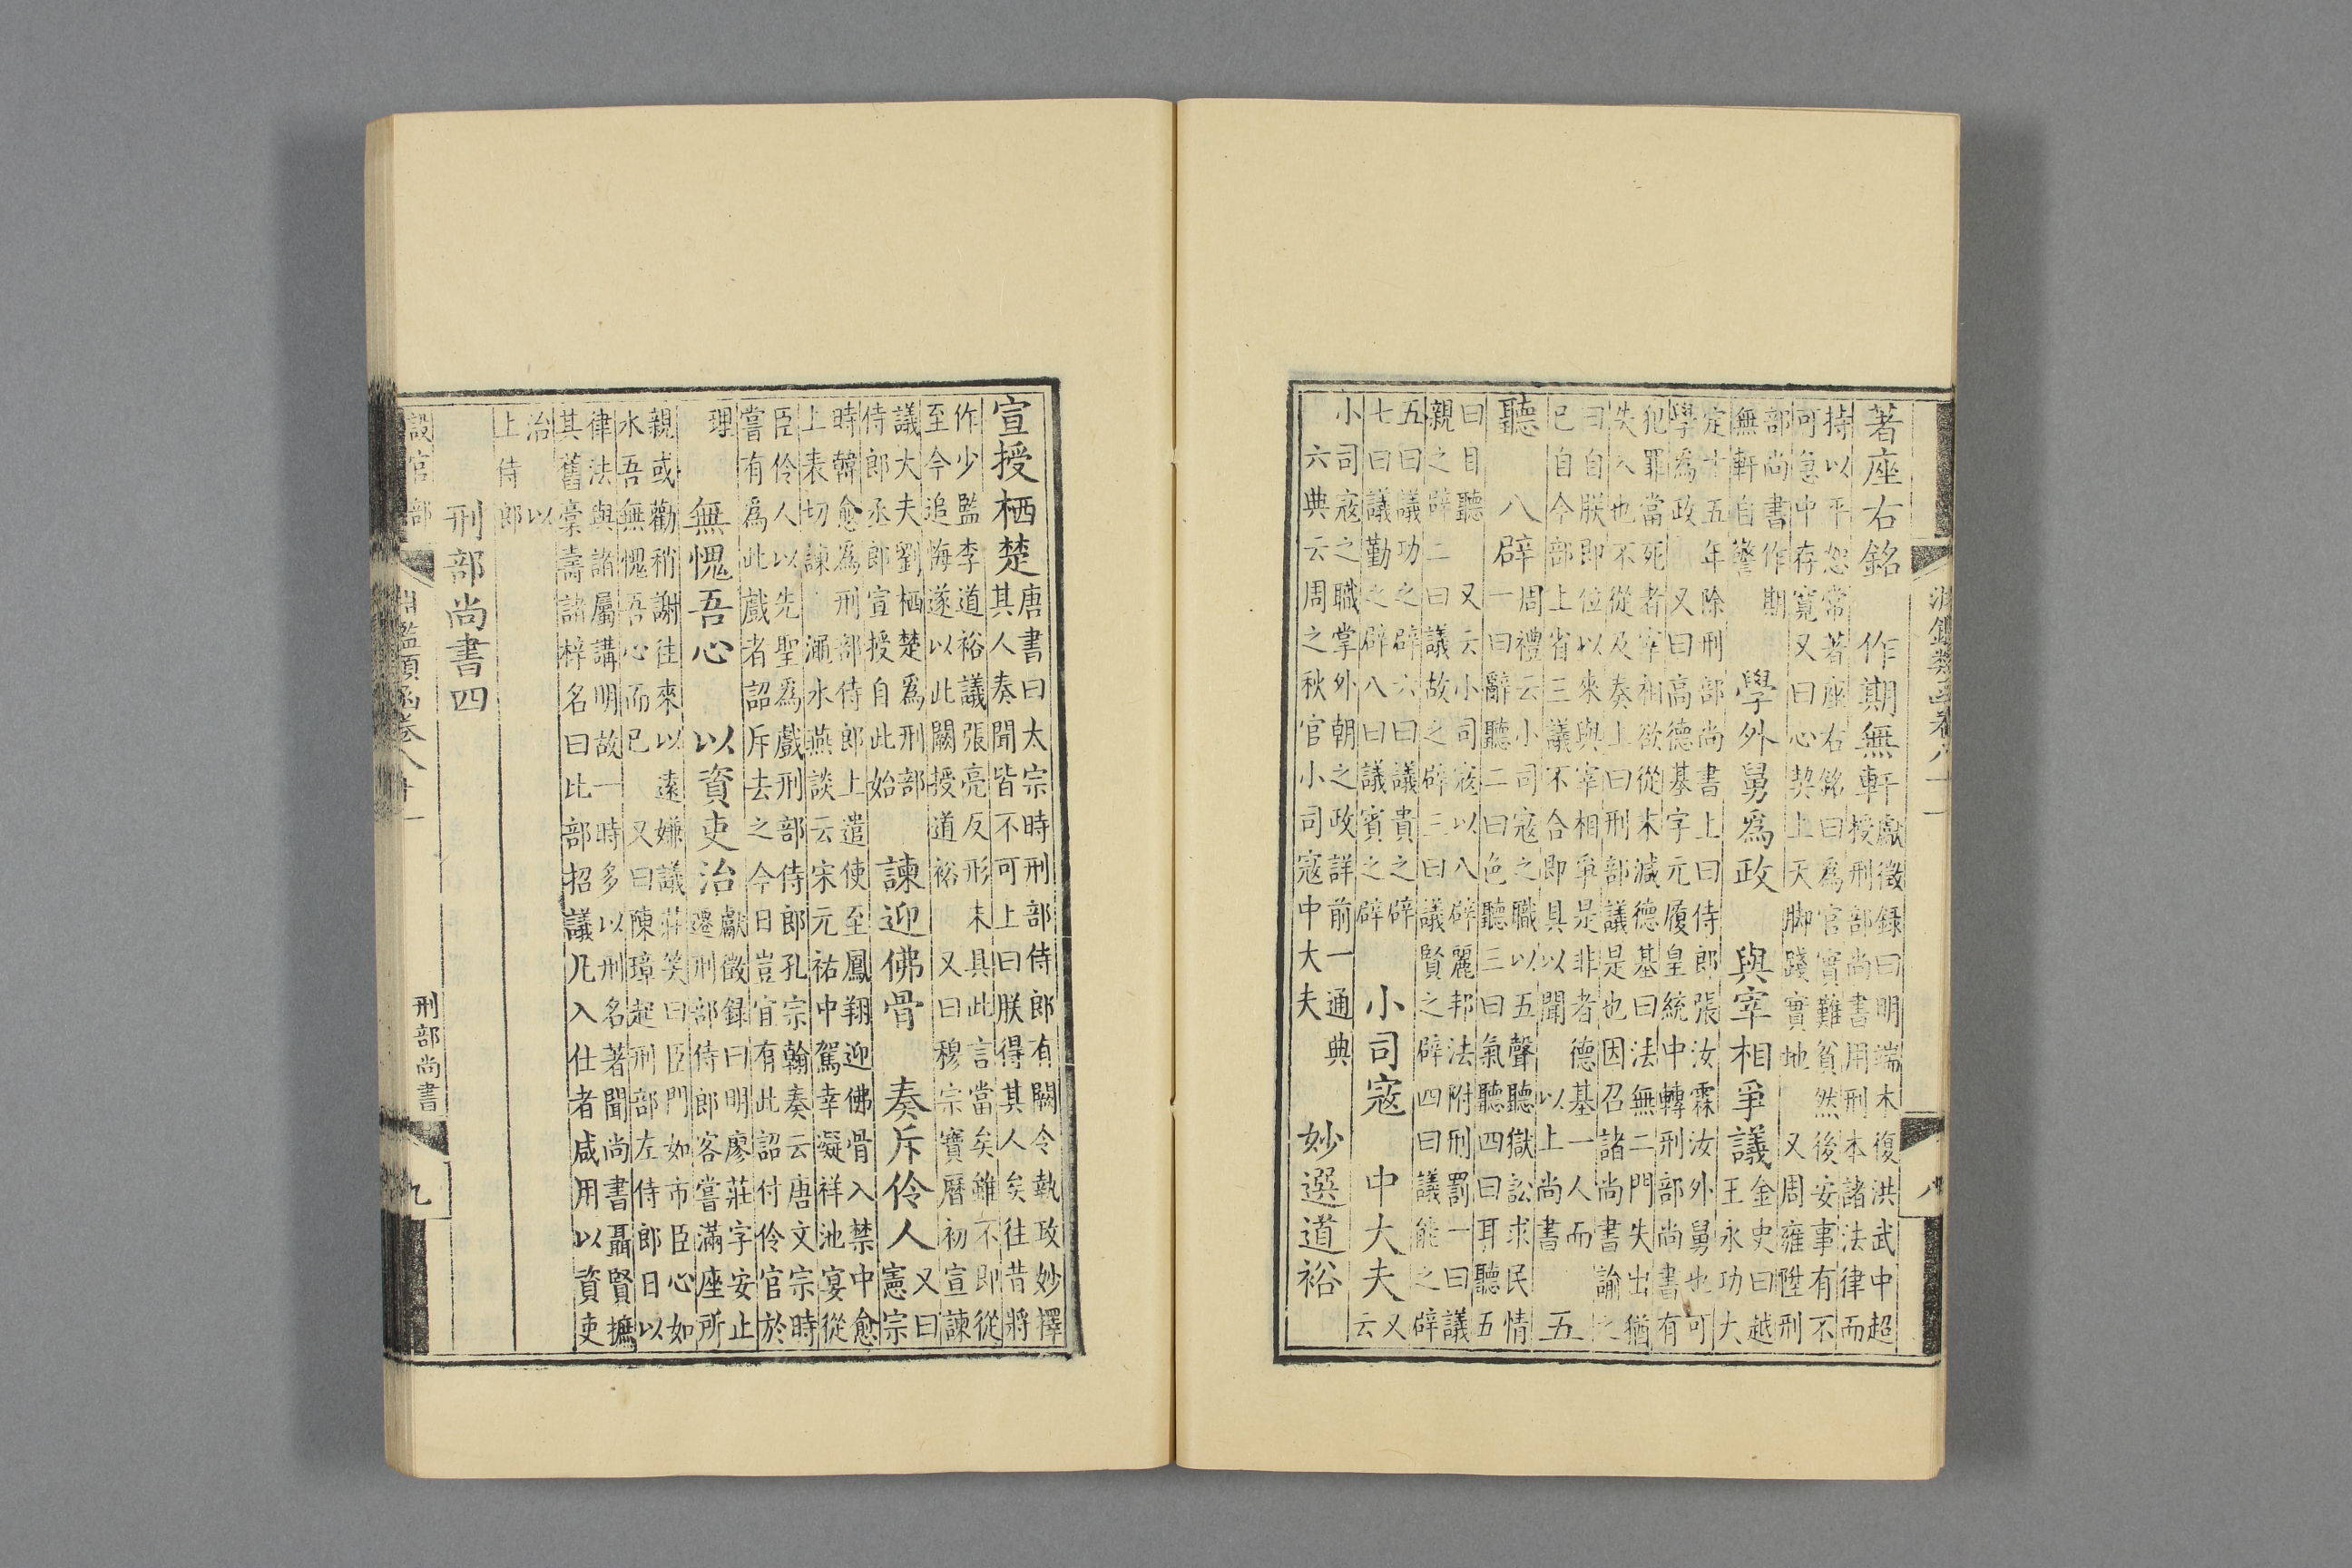 淵鑑類函卷八十一 八
著座右銘 作期無軒
獻徵録曰明端木復洪武中超
授刑部尚書用刑本諸法律而
持以平恕常著座右銘曰爲官實難貧然後安事有不
可急中存寬又曰心契上天脚踐實地 又周雍陞刑
部尚書作期
無軒自警
學外舅爲政 與宰相爭議
金史曰越
王永功大
定十五年除刑部尚書上曰侍郎張汝霖汝外舅也可
學爲政 又曰高德基字元履皇統中轉刑部尚書有
犯罪當死者宰相欲從末減德基曰法無二門失出猶
失入也不從及奏上曰刑部議是也因召諸尚書諭之
曰自朕即位以來與宰相爭是非者德基一人而
已自今部上省三議不合即具以聞 以上尚書
五
聽 八辟
周禮云小司寇之職以五聲聽獄訟求民情
一曰辭聽二曰色聽三曰氣聽四曰耳聽五
曰目聽 又云小司寇以八辟麗邦法附刑罰一曰議
親之辟二曰議故之辟三曰議賢之辟四曰議能之辟
五曰議功之辟六曰議貴之辟
七曰議勤之辟八曰議賓之辟
小司寇 中大夫
又
云
小司寇之職掌外朝之政詳前一通典
六典云周之秋官小司寇中大夫
妙選道裕
宣授栖楚
唐書曰太宗時刑部侍郎有闕令執政妙擇
其人奏聞皆不可上曰朕得其人矣往昔將
作少監李道裕議張亮反形未具此言當矣雖不即從
至今追悔遂以此闕授道裕 又曰穆宗寶曆初宣諫
議大夫劉栖楚爲刑部
侍郎丞郎宣授自此始
諫迎佛骨 奏斥伶人
又曰
憲宗
時韓愈爲刑部侍郎上遣使至鳳翔迎佛骨入禁中愈
上表切諫 澠水燕談云宋元祐中駕幸凝祥池宴從
臣伶人以先聖爲戲刑部侍郎孔宗翰奏云唐文宗時
嘗有爲此戲者詔斥去之今日豈宜有此詔付伶官於
理
無愧吾心 以資吏治
獻徵録曰明廖莊字安止
遷刑部侍郎客嘗滿座所
親或勸稍謝往來以遠嫌議莊笑曰臣門如市臣心如
水吾無愧吾心而已 又曰陳璋起刑部左侍郎日以
律法與諸屬講明故一時多以刑名著聞尚書聶賢摭
其舊稾壽諸梓名曰比部招議凡入仕者咸用以資吏
治 以
上侍郎
刑部尚書四
設官部 淵鑑類函卷八十一 刑部尚書 九